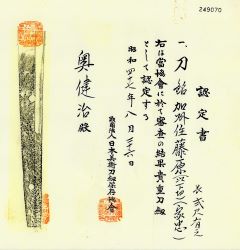 249070
認定書
一、刀 銘 加州住藤原
長 弐尺
右は當協會に於て審査の結果貴重刀劔
として認定する
昭和四十八年八月二十六日
財團法人日本美術刀劔保存協會
奥健治殿